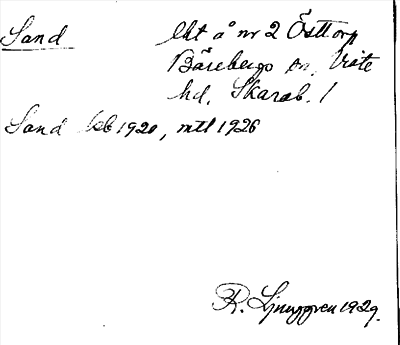 Sand lht å nr 2 Östtorp
Bärebergs sn, Viste
hd, Skarab. l
Sand kb 1920, mtl 1926
R. Ljunggren 1929.